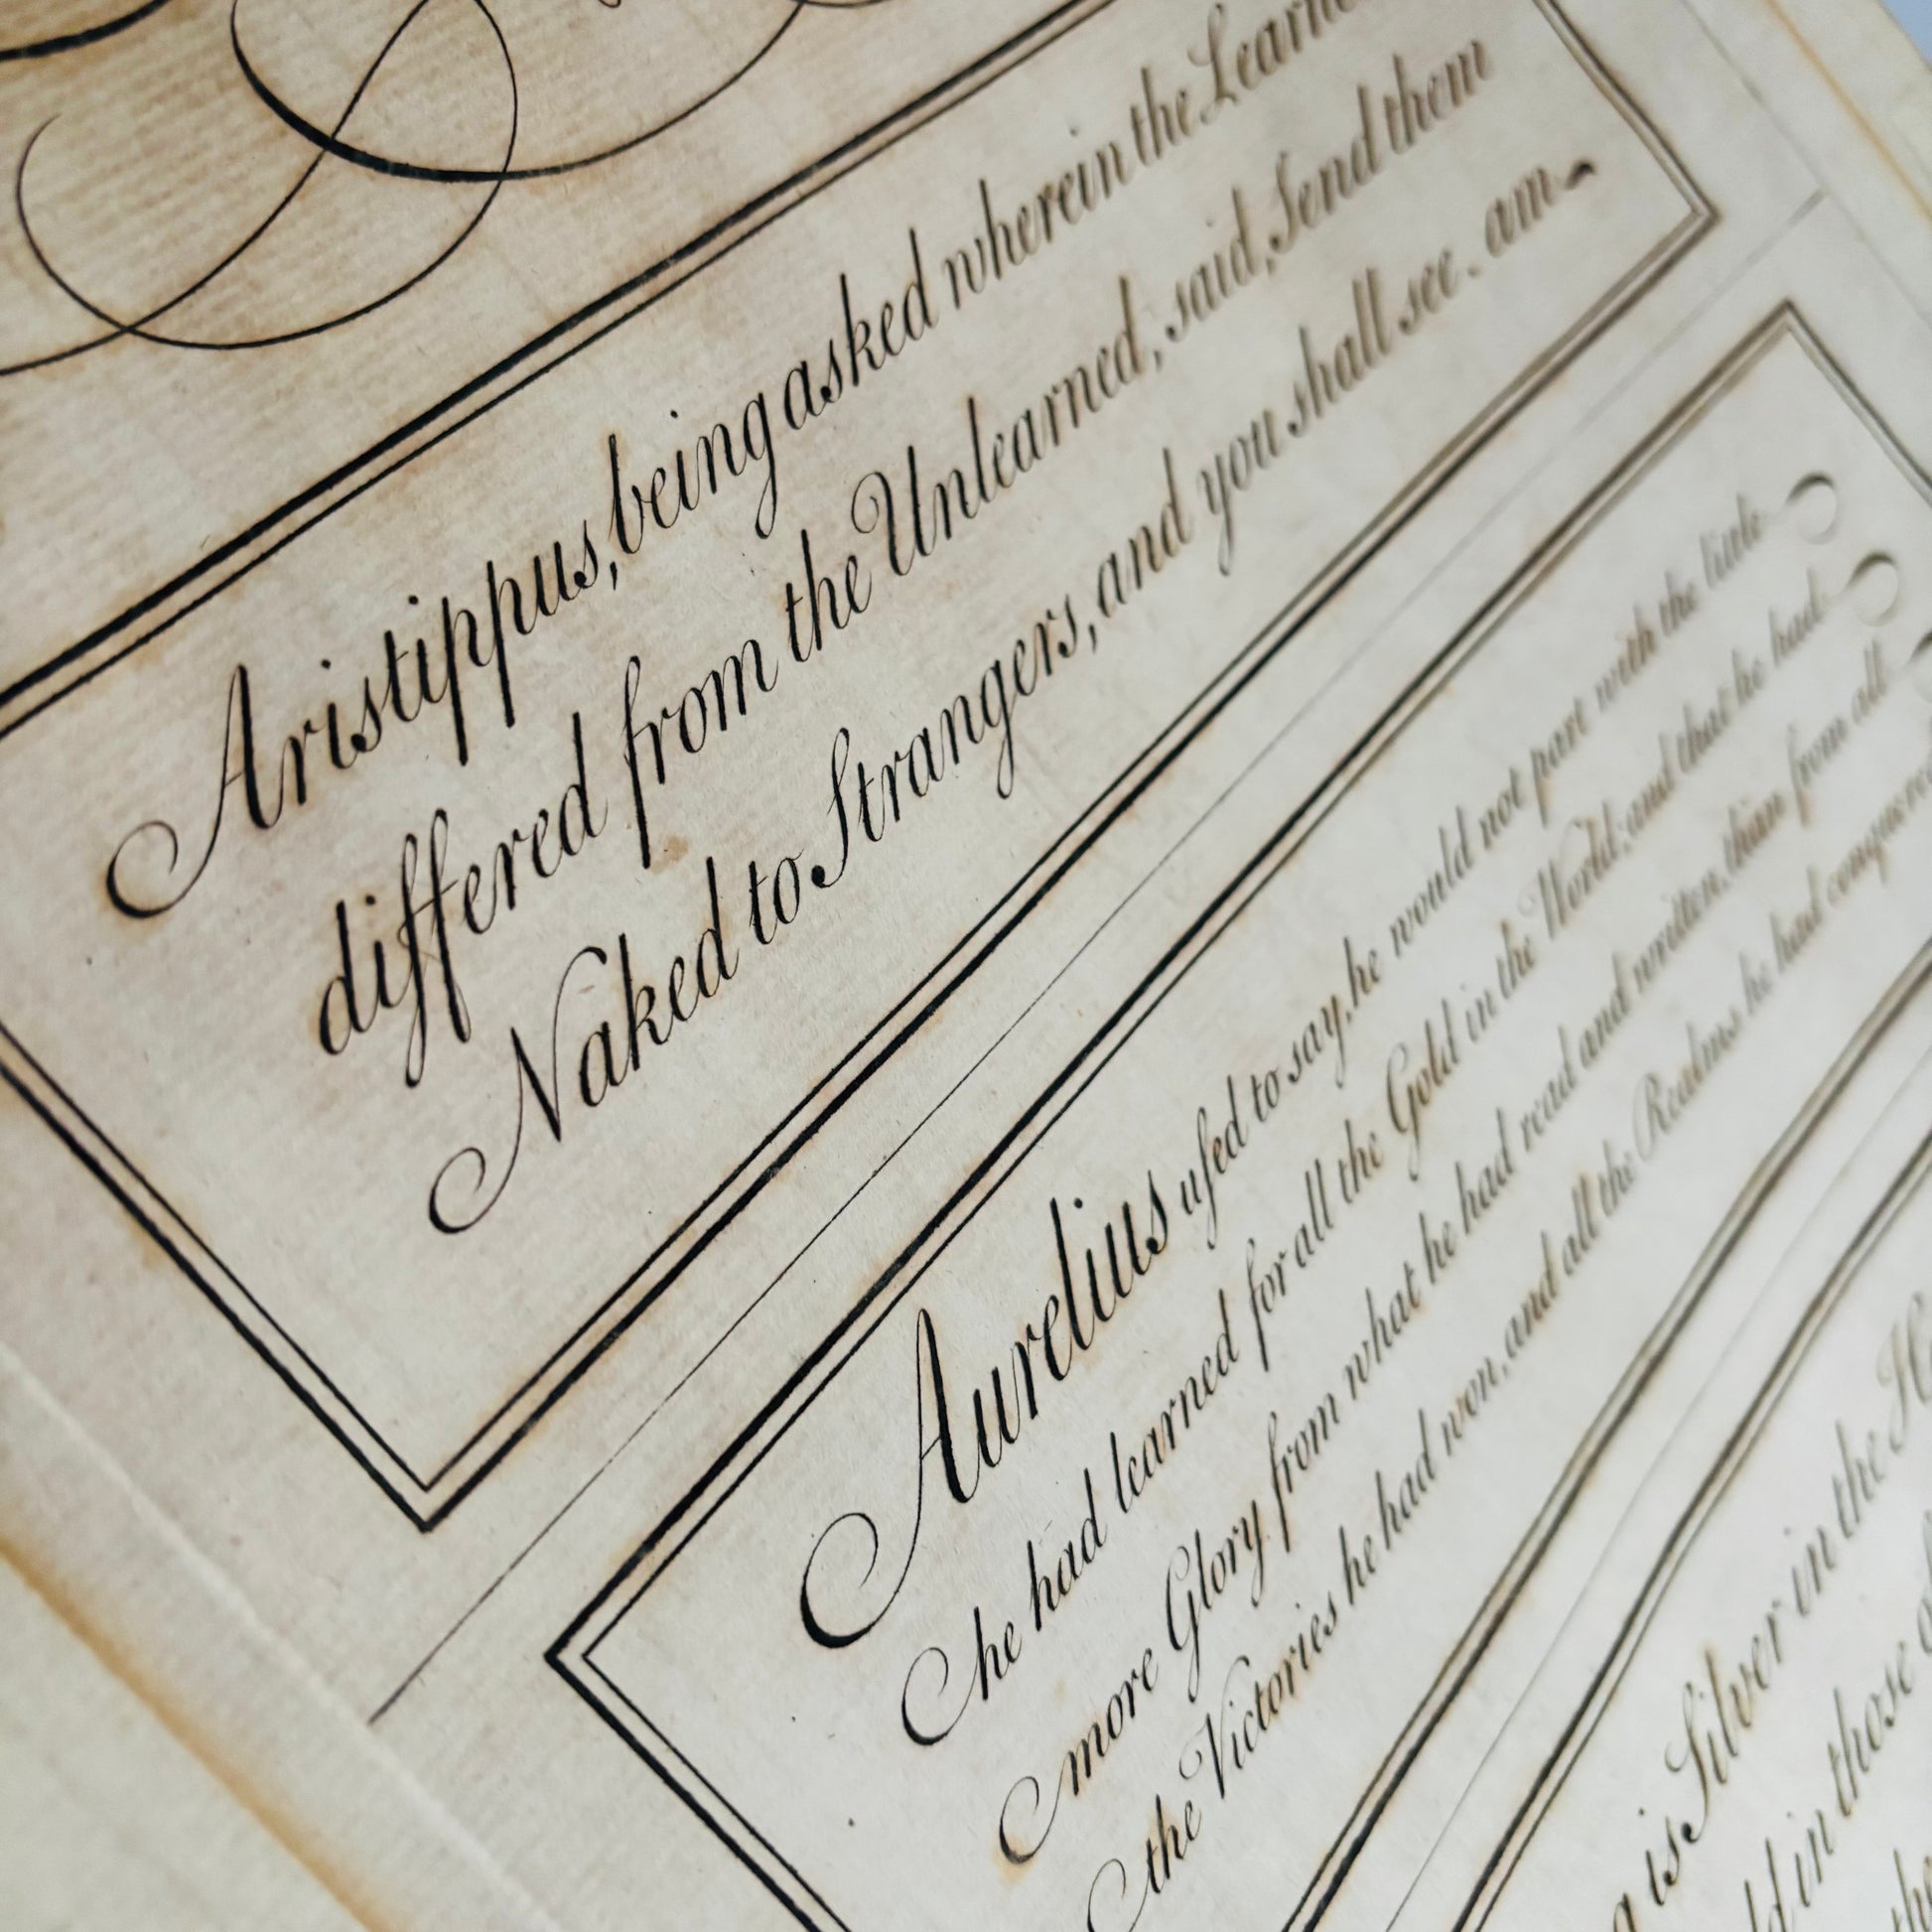 Aristippus, being asked wherein the
differed from the Unlearned, said, Send them
Naked to Strangers, and you shall see. am
Aurelius uſed to say, he would not part with the little
he had learned for all the Gold in the World; and that he had
more Glory from what he had read and written, than from all
the Victories he had won, and all the Realms he had
is Silver in the
in those